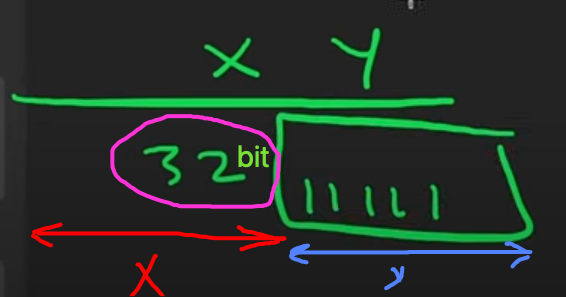 X Y
32 bit 11111
X y